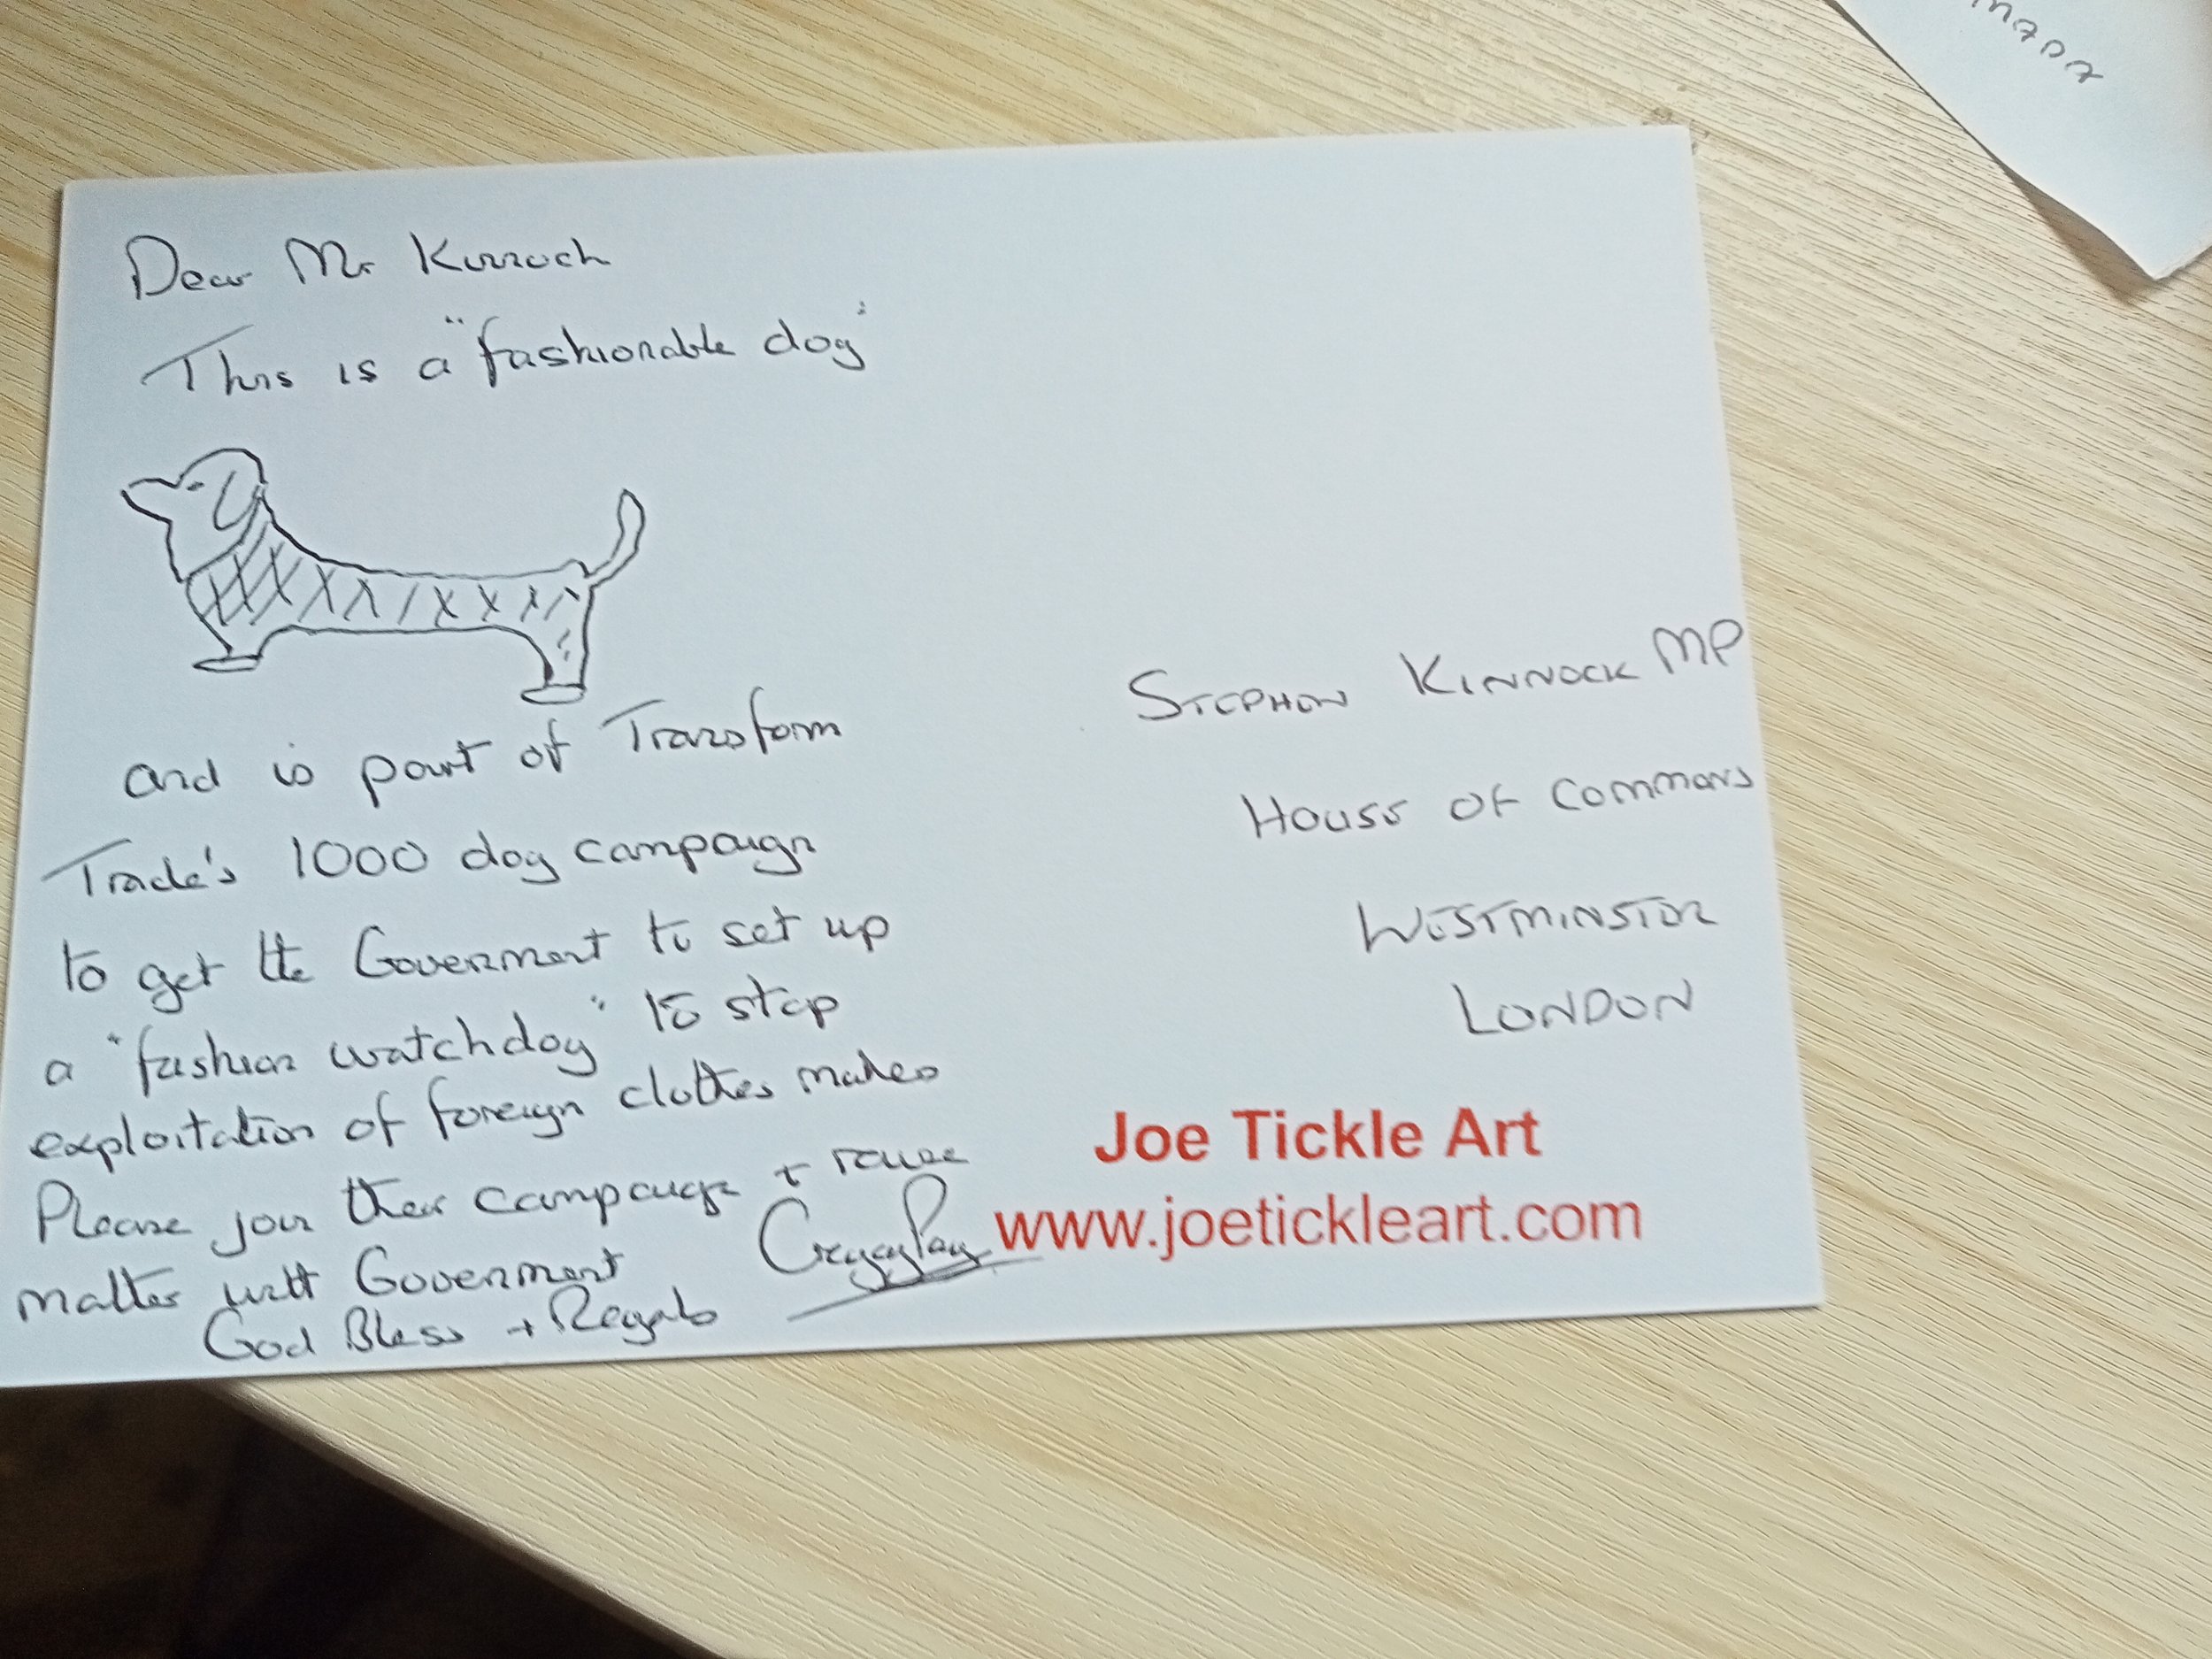 Dear Mr Kinnock
This is a "fashionable dog"
and is part of Transform
Trade's 1000 dog campaign
to get the Goverment to set up
a "fashion watchdog" to stop
exploitation of foreign clothes makes
Please join their campaign + raise
matter with Goverment
God Bless + Regards
STEPHEN KINNOCK MP
HOUSE OF COMMONS
WESTMINSTER
LONDON
Joe Tickle Art
www.joetickleart.com